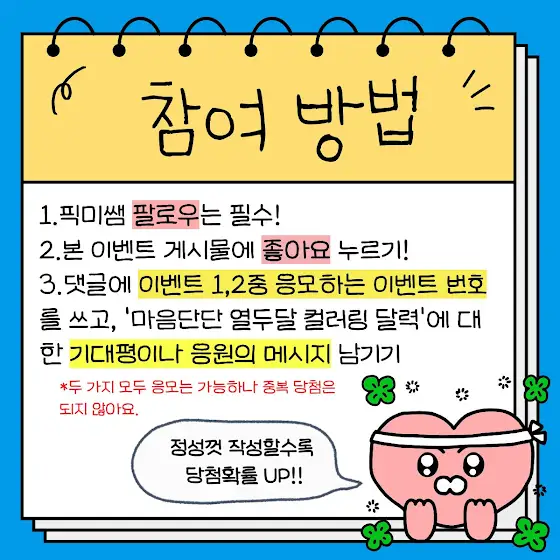 참여 방법
1.픽미쌤 팔로우는 필수!
2.본 이벤트 게시물에 좋아요 누르기!
3.댓글에 이벤트 1,2중 응모하는 이벤트 번호
를 쓰고, '마음단단 열두달 컬러링 달력'에 대
한 기대평이나 응원의 메시지 남기기
*두 가지 모두 응모는 가능하나 중복 당첨은
되지 않아요.
정성껏 작성할수록
당첨확률 UP!!